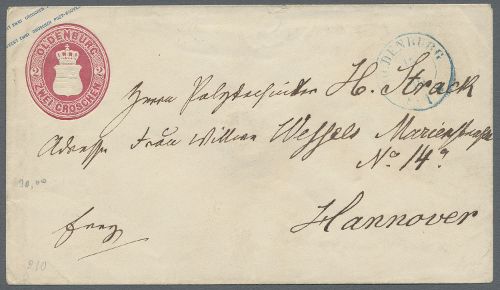 OLDENBURG
2 2
ZWEI GROSCHEN
OLDENBURG
Herrn Polytechniker H. Strack
Adresse Frau Wittwe Wessels Marienstrasse
No 14a
Hannover
frey